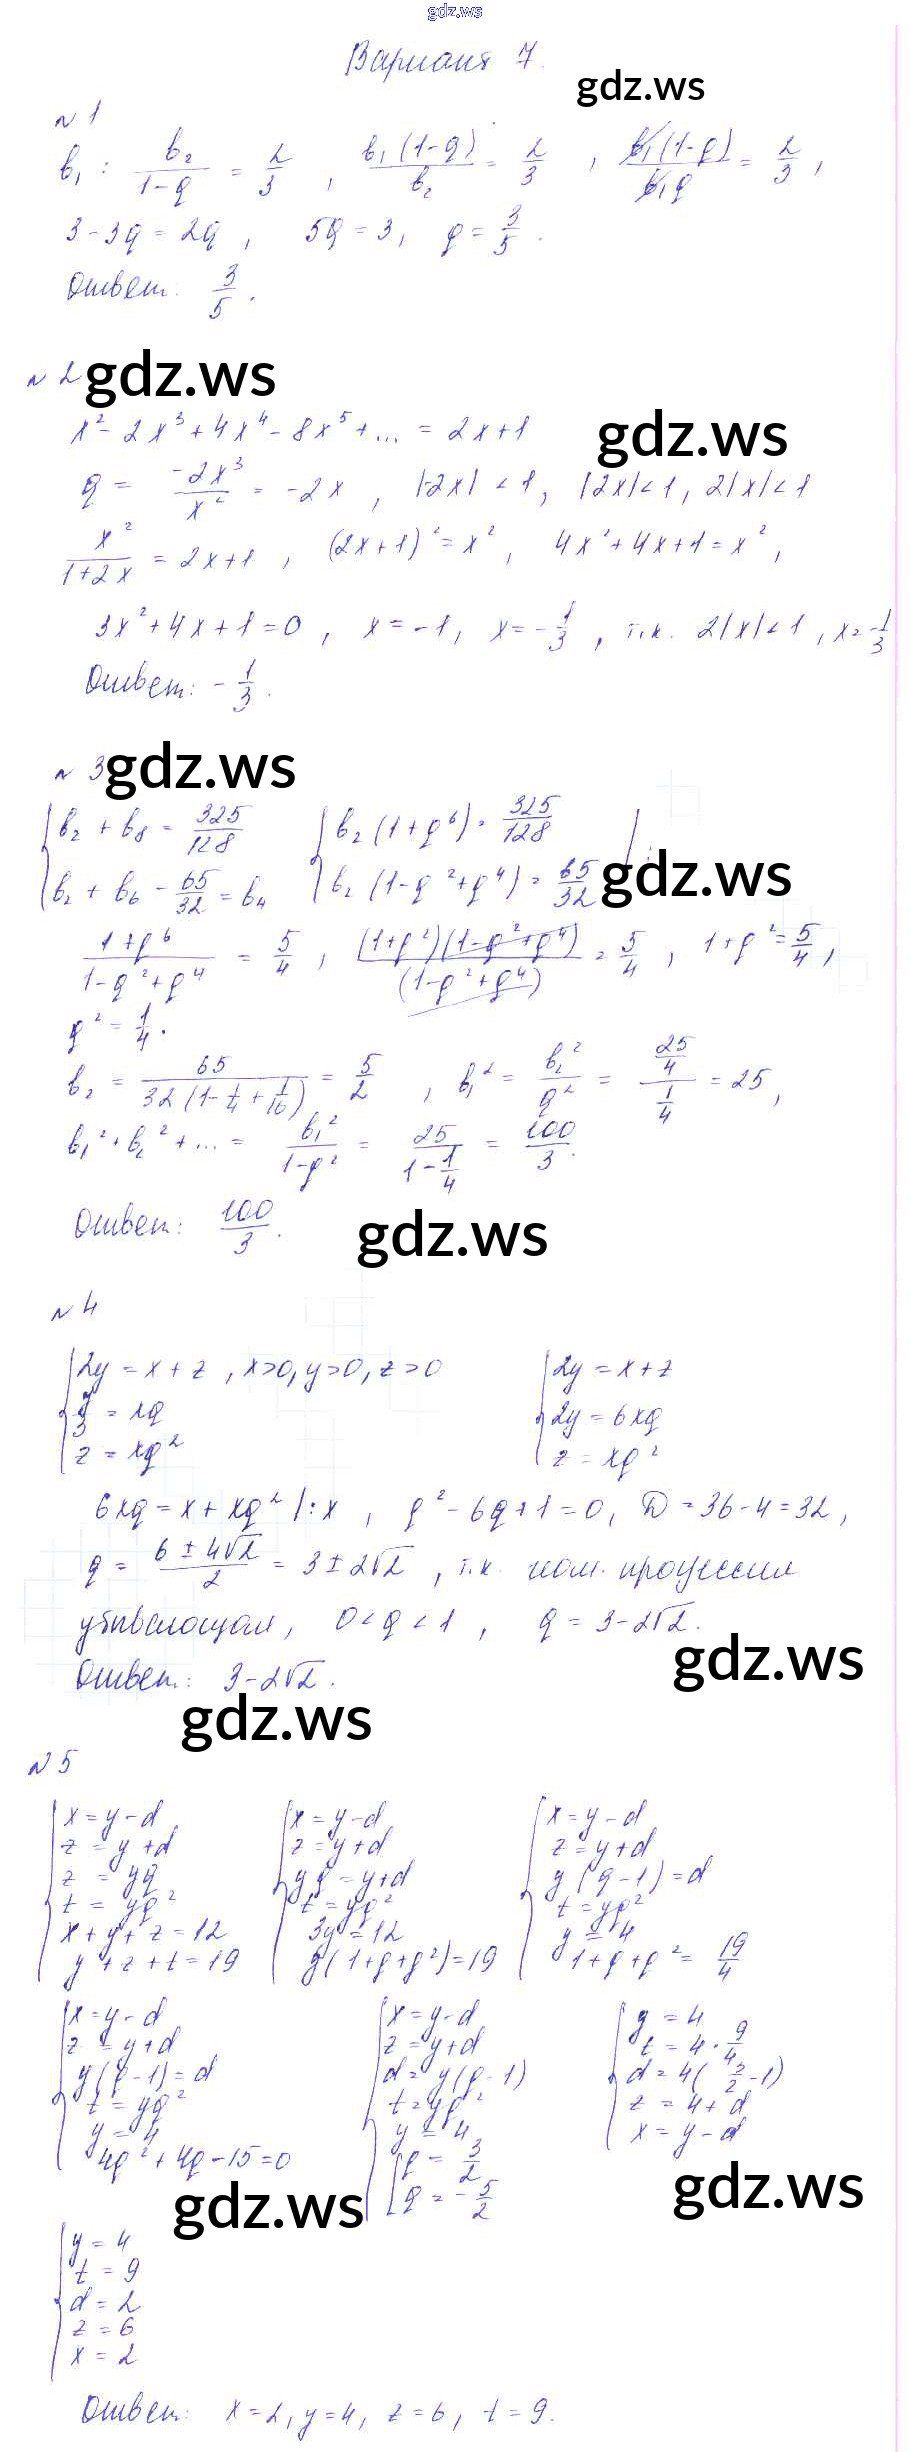 gdz.ws
Вариант 7.
gdz.ws
№1
b₁ : b₂/(1-q) = 2/3 , b₁(1-q)/b₂ = 2/3 , b₁(1-q)/b₁q = 2/3 ,
3-3q = 2q , 5q = 3 , q = 3/5 .
Ответ: 3/5 .
№2 gdz.ws
x² - 2x³ + 4x⁴ - 8x⁵ + ... = 2x+1
gdz.ws
q = -2x³/x² = -2x , |-2x| < 1 , |2x| < 1 , 2|x| < 1
x²/(1+2x) = 2x+1 , (2x+1)² = x² , 4x²+4x+1 = x² ,
3x²+4x+1=0 , x = -1 , x = -1/3 , т.к. 2|x|<1 , x = -1/3
Ответ: -1/3 .
№3 gdz.ws
{ b₂ + b₈ = 325/128 { b₂(1+q⁶) = 325/128 | :
{ b₂ + b₆ - 65/32 = b₄ { b₂(1-q²+q⁴) = 65/32
gdz.ws
(1+q⁶)/(1-q²+q⁴) = 5/4 , (1+q²)(1-q²+q⁴)/(1-q²+q⁴) = 5/4 , 1+q² = 5/4 ,
q² = 1/4 .
b₂ = 65/(32(1-1/4+1/16)) = 5/2 , b₁² = b₂²/q² = (25/4)/(1/4) = 25 ,
b₁² + b₂² + ... = b₁²/(1-q²) = 25/(1-1/4) = 100/3 .
Ответ: 100/3 .
gdz.ws
№4
{ 2y = x+z , x>0, y>0, z>0 { 2y = x+z
{ y/3 = xq { 2y = 6xq
{ z = xq² { z = xq²
6xq = x + xq² |:x , q² - 6q + 1 = 0 , D = 36-4 = 32 ,
q = (6 ± 4√2)/2 = 3 ± 2√2 , т.к. геом. прогрессия
убывающая, 0 < q < 1 , q = 3-2√2 .
gdz.ws
Ответ: 3-2√2 .
gdz.ws
№5
{ x = y-d { x = y-d { x = y-d
{ z = y+d { z = y+d { z = y+d
{ z = yq { yq = y+d { y(q-1) = d
{ t = yq² { t = yq² { t = yq²
{ x+y+z = 12 { 3y = 12 { y = 4
{ y+z+t = 19 { y(1+q+q²) = 19 { 1+q+q² = 19/4
{ x = y-d { x = y-d { y = 4
{ z = y+d { z = y+d { t = 4·9/4
{ y(q-1) = d { d = y(q-1) { d = 4(3/2-1)
{ t = yq² { t = yq² { z = 4+d
{ y = 4 { y = 4 { x = y-d
{ 4q²+4q-15=0 [ q = 3/2
[ q = -5/2
gdz.ws
gdz.ws
{ y = 4
{ t = 9
{ d = 2
{ z = 6
{ x = 2
Ответ: x=2, y=4, z=6, t=9.